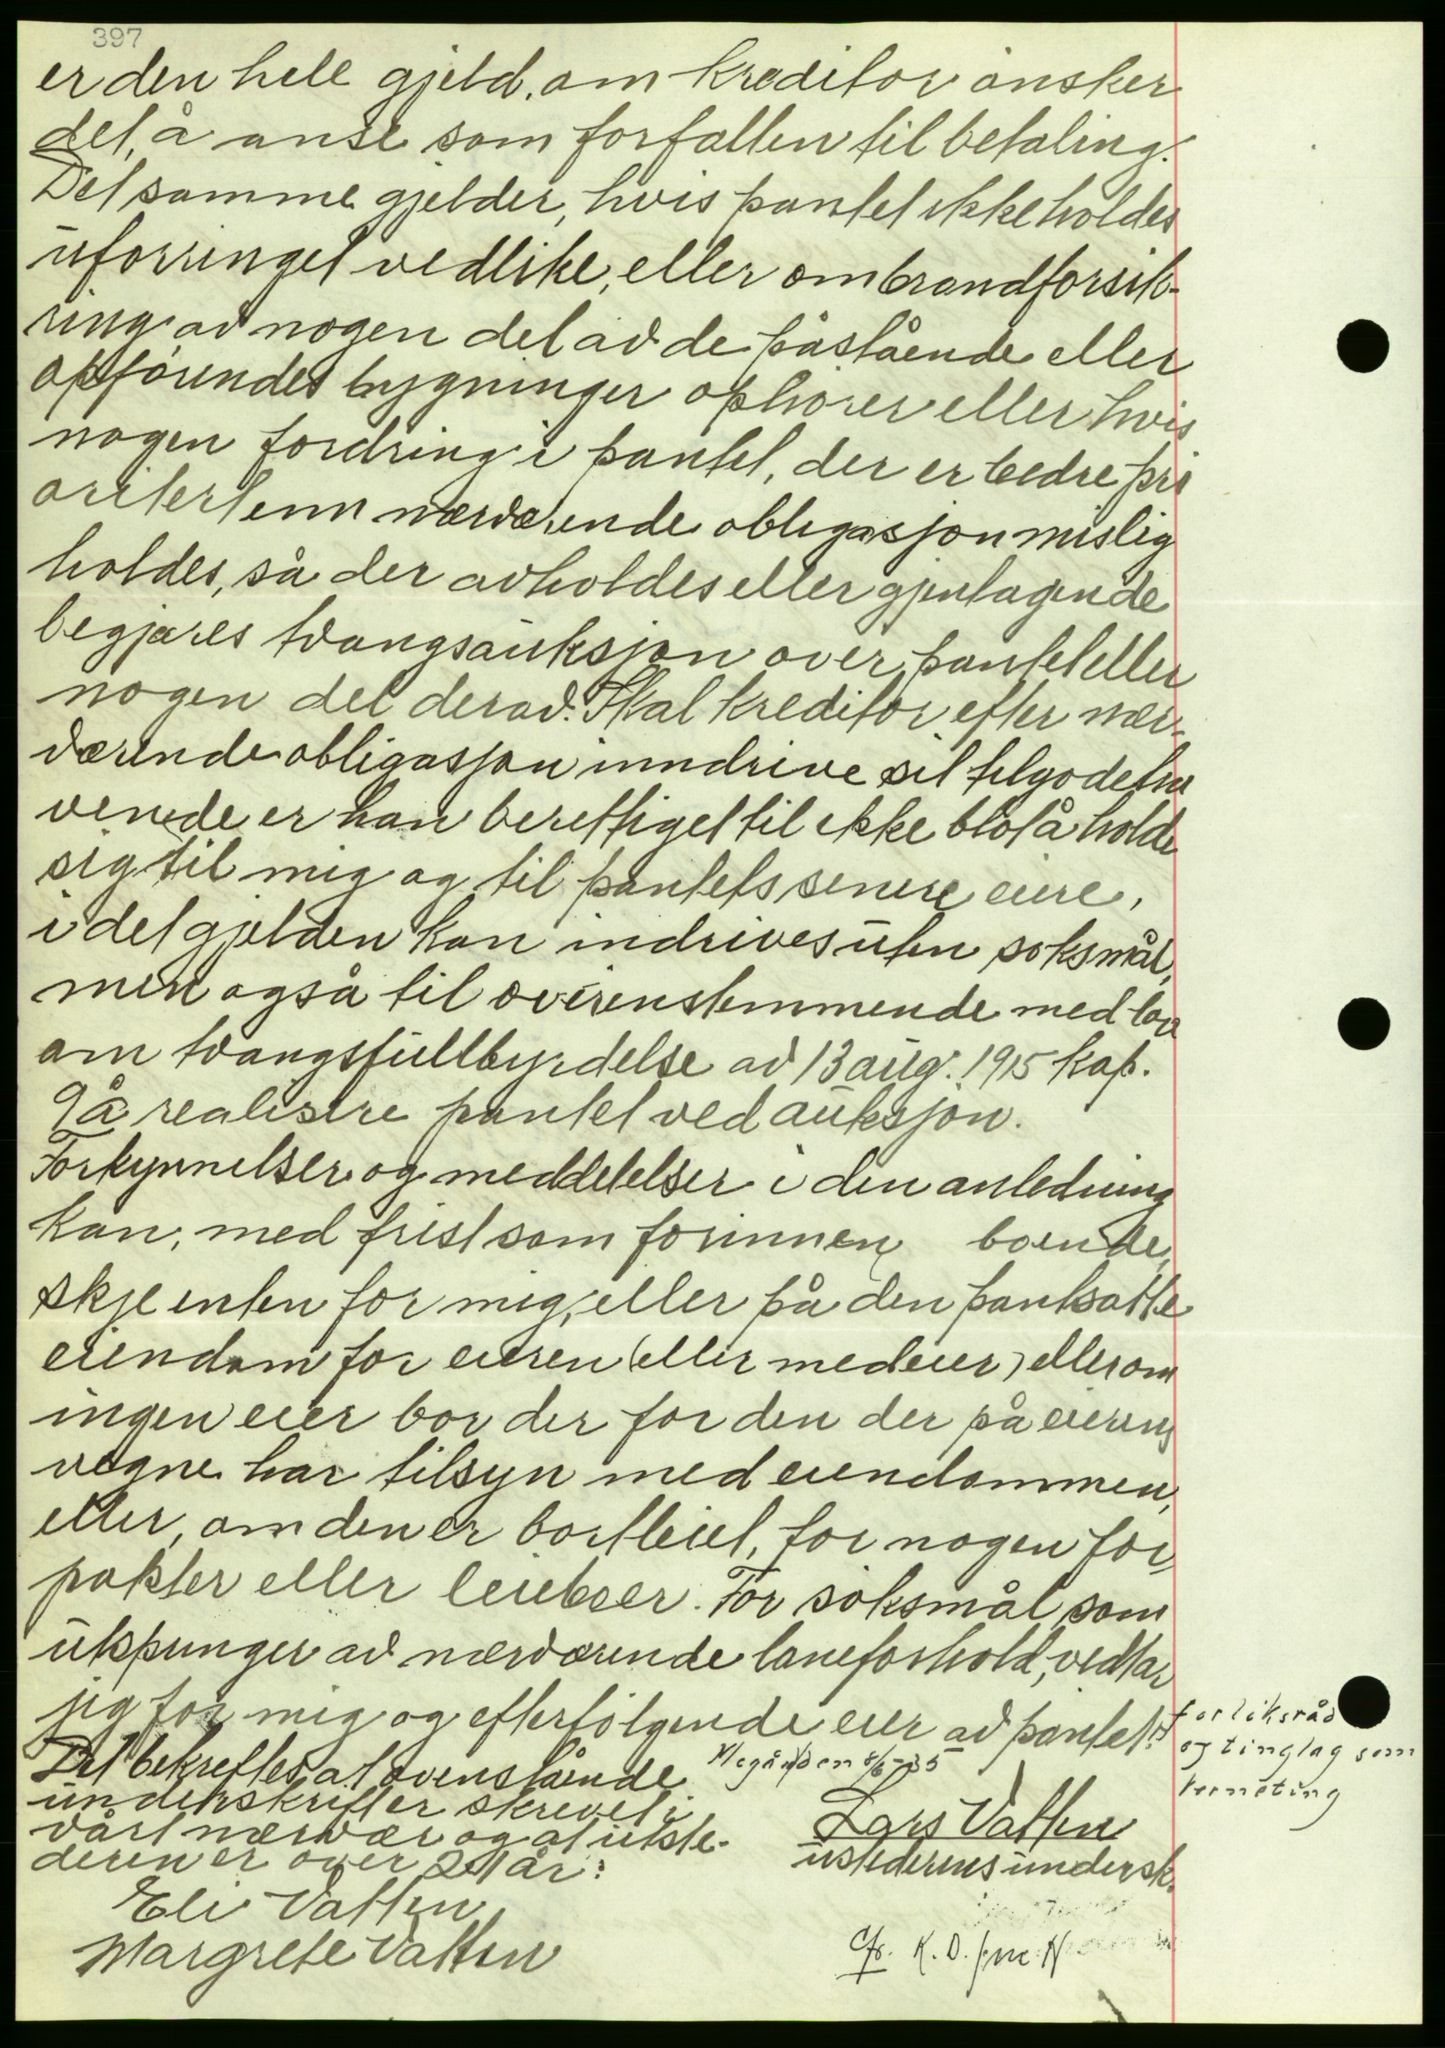 397
er den hele gjeld, om kreditor ønsker
det, å anse som forfallen til betaling.
Det samme gjelder, hvis pantet ikke holdes
uforringet vedlike, eller om brandforsik-
ring av nogen del av de påstående eller
opførendes bygninger ophører eller hvis
nogen fordring i pantet, der er bedre pri
oritert enn nærværende obligasjon mislig
holdes, så der avholdes eller gjentagende
begjæres tvangsauksjon over pantet eller
nogen del derav. Skal kreditor efter nær-
værende obligasjon inndrive sit tilgodeha
vende er han berettiget til ikke blot å holde
sig til mig og til pantets senere eiere,
i det gjelden kan indrives uten søksmål,
men også til overenstemmende med lov
om tvangsfullbyrdelse av 13 aug. 1915 kap.
9 å realisere pantet ved auksjon.
Forkynnelser og meddelelser i den anledning
kan, med frist som forinnen boende,
skje enten for mig, eller på den pantsatte
eiendom for eieren (eller medeier) eller om
ingen eier bor der for den der på eierens
vegne har tilsyn med eiendommen,
eller, om den er bortleiet, for nogen for-
pakter eller leieboer. For søksmål som
utspringer av nærværende låneforhold, vedtar
jeg for mig og efterfølgende eier av pantet
forliksråd
og tinglag som
verneting
Det bekreftes at ovenstående
underskrifter skrevet i
vårt nærvær og at utste-
deren er over 21 år:
Megården 8/6-35
Lars Vatten
ustederens undersk.
Eli Vatten
Margrete Vatten